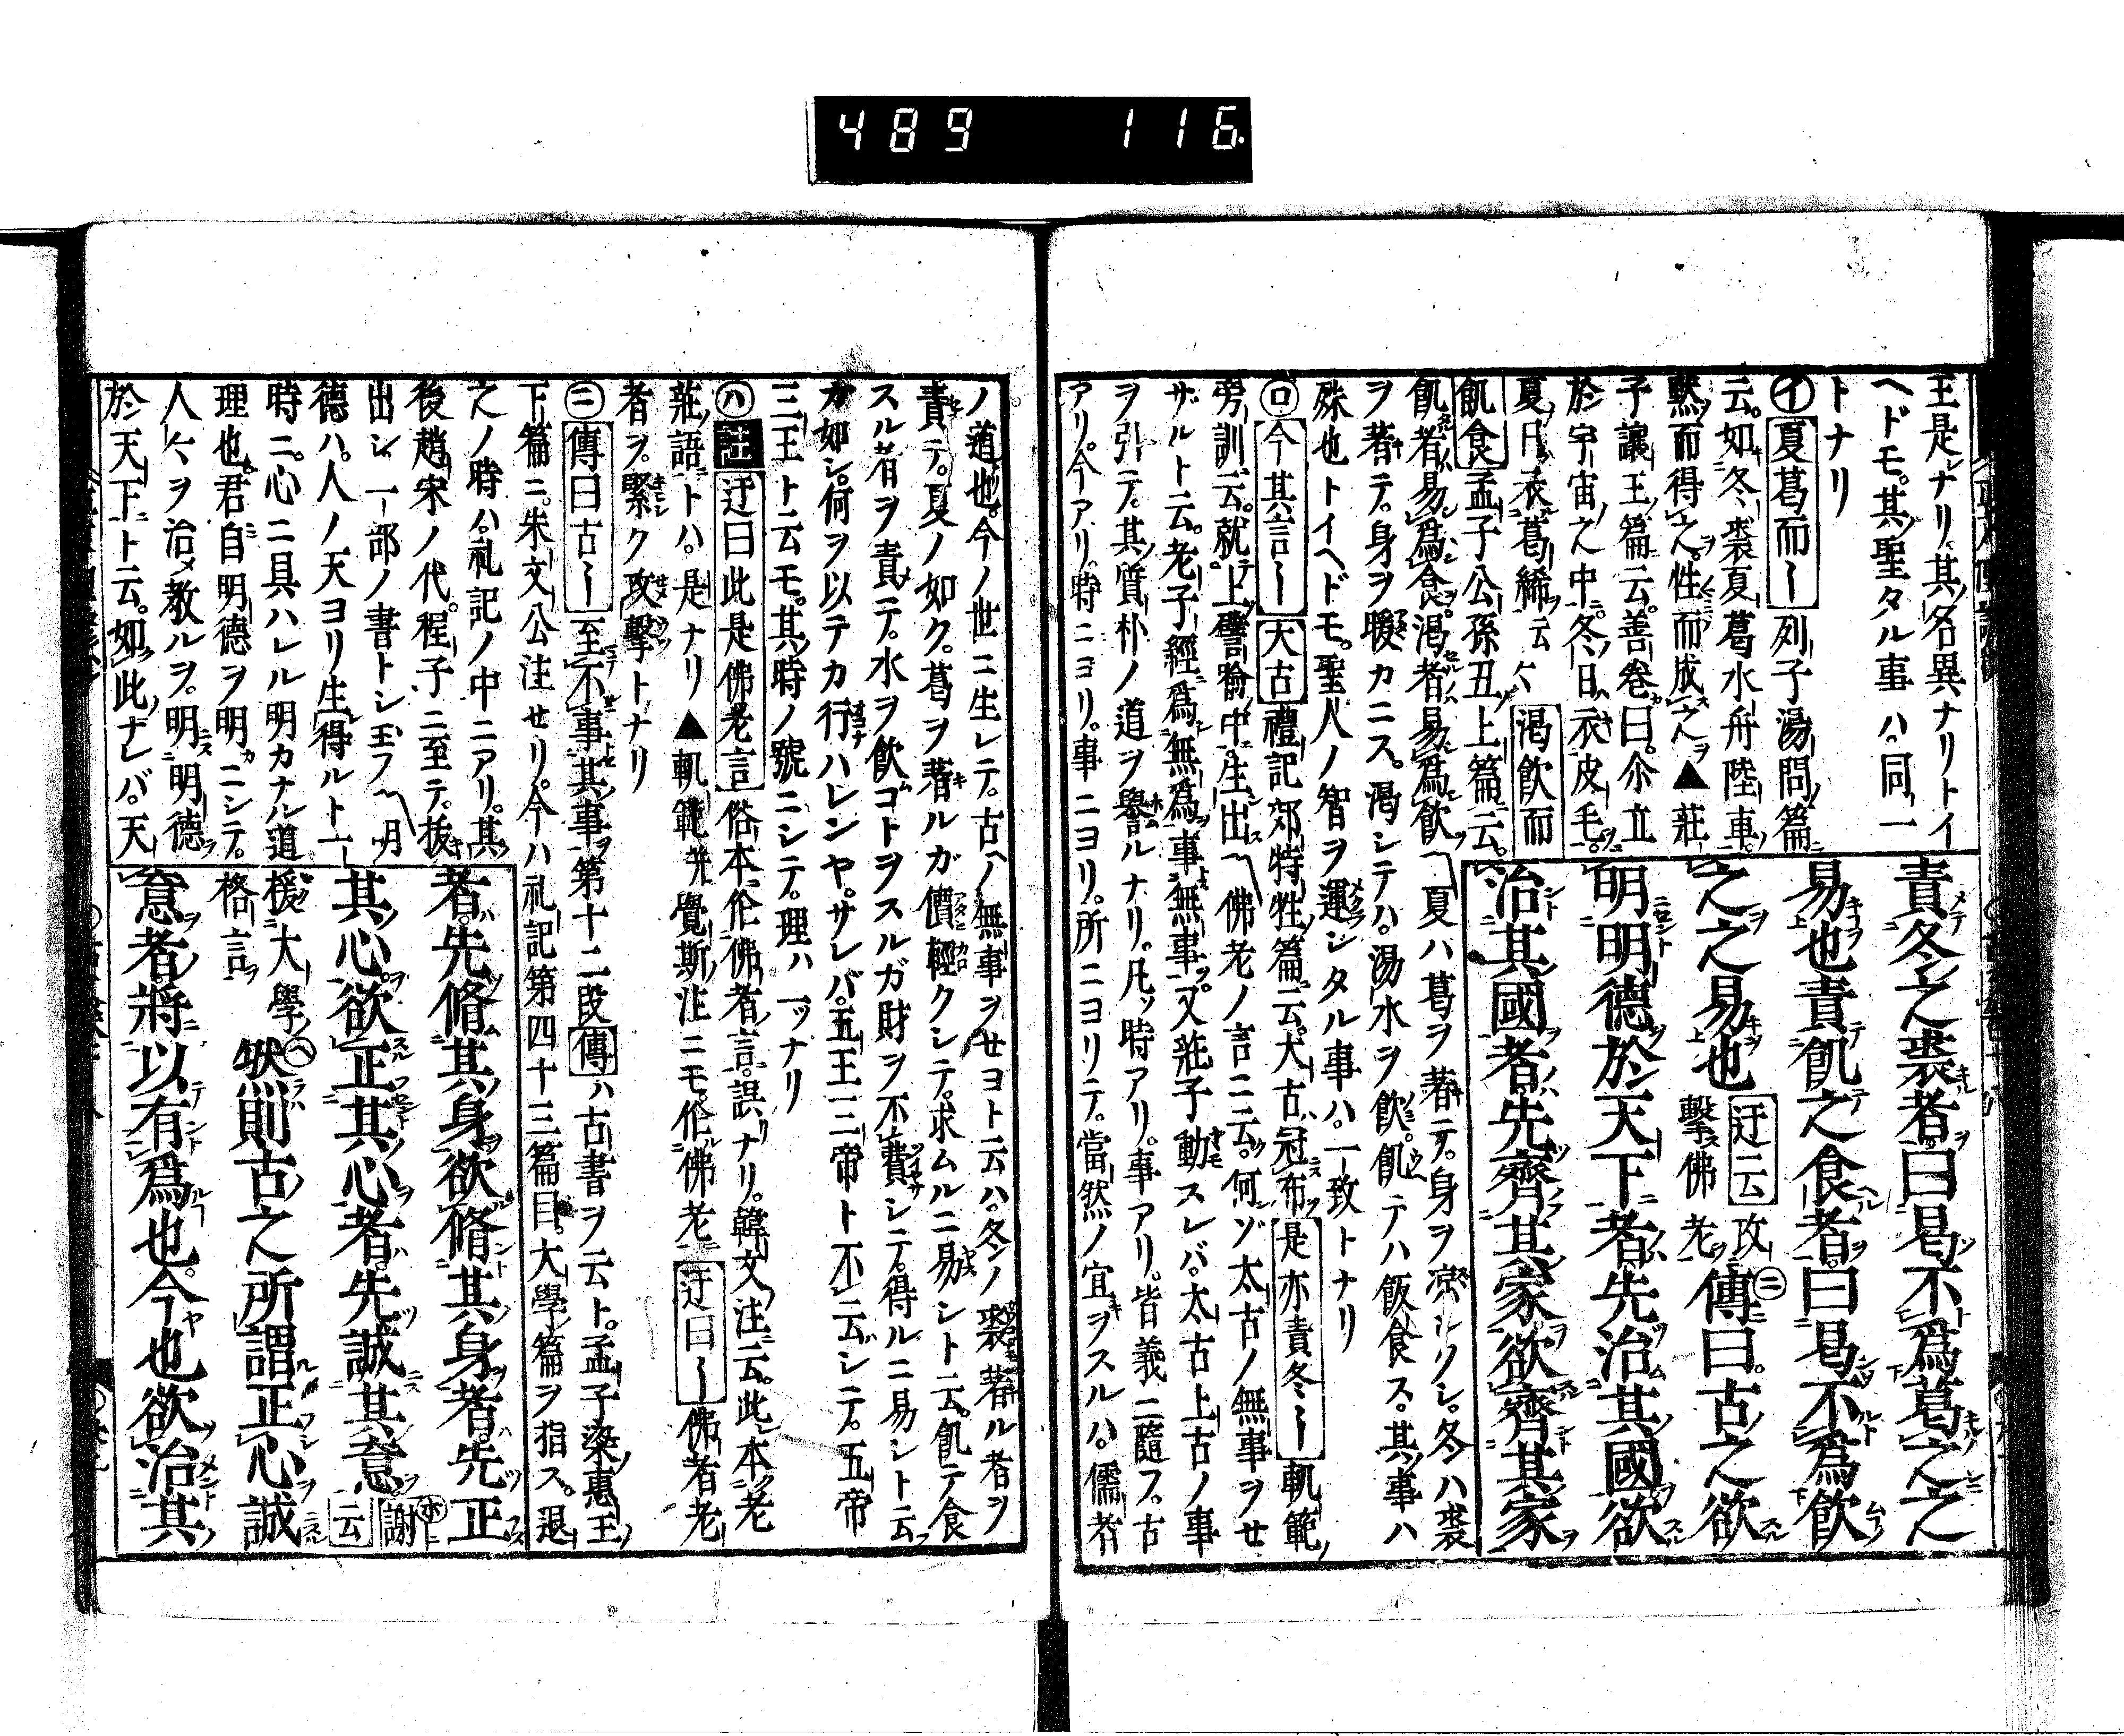 489 116
王是ナリ其名異ナリトイ
ヘドモ其聖タル事ハ同一
トナリ
㋑夏葛而〡列子湯問篇
云如冬裘夏葛水舟陸車
黙而得之性而成之▲莊
子讓王篇云善卷曰余立
於宇宙之中冬日衣皮毛
夏日衣葛絺云々渇飲而
飢食孟子公孫丑上篇云
飢者易爲食渇者易爲飲
責冬之裘者曰曷不爲葛之之
易也責飢之食者曰曷不爲飲
之之易也迂云攻擊佛老㊁傳曰古之欲
明明德於天下者先治其國欲
治其國者先齊其家欲齊其家
夏ハ葛ヲ著テ身ヲ凉シクシ冬ハ裘
ヲ著テ身ヲ暖カニス渇シテハ湯水ヲ飲飢テハ飯食ス其事ハ
殊也トイヘドモ聖人ノ智ヲ運シタル事ハ一致トナリ
㋺今其言〡大古禮記郊特牲篇云大古冠布是亦責冬〡軌範
旁訓云就上譬喻中生出佛老ノ言ニ云何ゾ太古ノ無事ヲせ
ザルト云老子經爲無爲事無事又莊子動スレバ太古上古ノ事
ヲ引テ其質朴ノ道ヲ譽ルナリ凡ソ時アリ事アリ皆義ニ隨フ古
アリ今アリ時ニヨリ事ニヨリ所ニヨリテ當然ノ宜ヲスルハ儒者
ノ道也今ノ世ニ生レテ古ヘノ無事ヲせヨト云ハ冬ノ裘著ル者ヲ
責テ夏ノ如ク葛ヲ著ルガ價輕クシテ求ムルニ易シト云飢テ食
スル者ヲ責テ水ヲ飲コトヲスルガ財ヲ不費シテ得ルニ易シト云
ガ如シ何ヲ以テカ行ハレンヤサレバ五王三帝ト不云シテ五帝
三王ト云モ其時ノ號ニシテ理ハ一ツナリ
㋩註迂曰此是佛老言俗本佗佛者言誤ナリ韓文注云此本老
莊語トハ是ナリ▲軌範并覺斯注ニモ佗佛老迂曰〡佛者老
者ヲ緊ク攻擊トナリ
㊁傳曰古〡至不事其事第十二段傳ハ古書ヲ云ト孟子梁惠王
下篇ニ朱文公注せリ今ハ礼記第四十三篇目大學篇ヲ指ス退
之ノ時ハ礼記ノ中ニアリ其
後趙宋ノ代程子ニ至テ抜
出シ一部ノ書トシ玉フ明
德ハ人ノ天ヨリ生得ルト一
時ニ心ニ具ハレル明カナル道
理也君自明德ヲ明カニシテ
人々ヲ治メ教ルヲ明明德
於天下ト云如此ナレバ天
者先脩其身欲脩其身者先正
其心欲正其心者先誠其意㋭謝云
援大學格言㋬然則古之所謂正心誠
意者將以有爲也今也欲治其